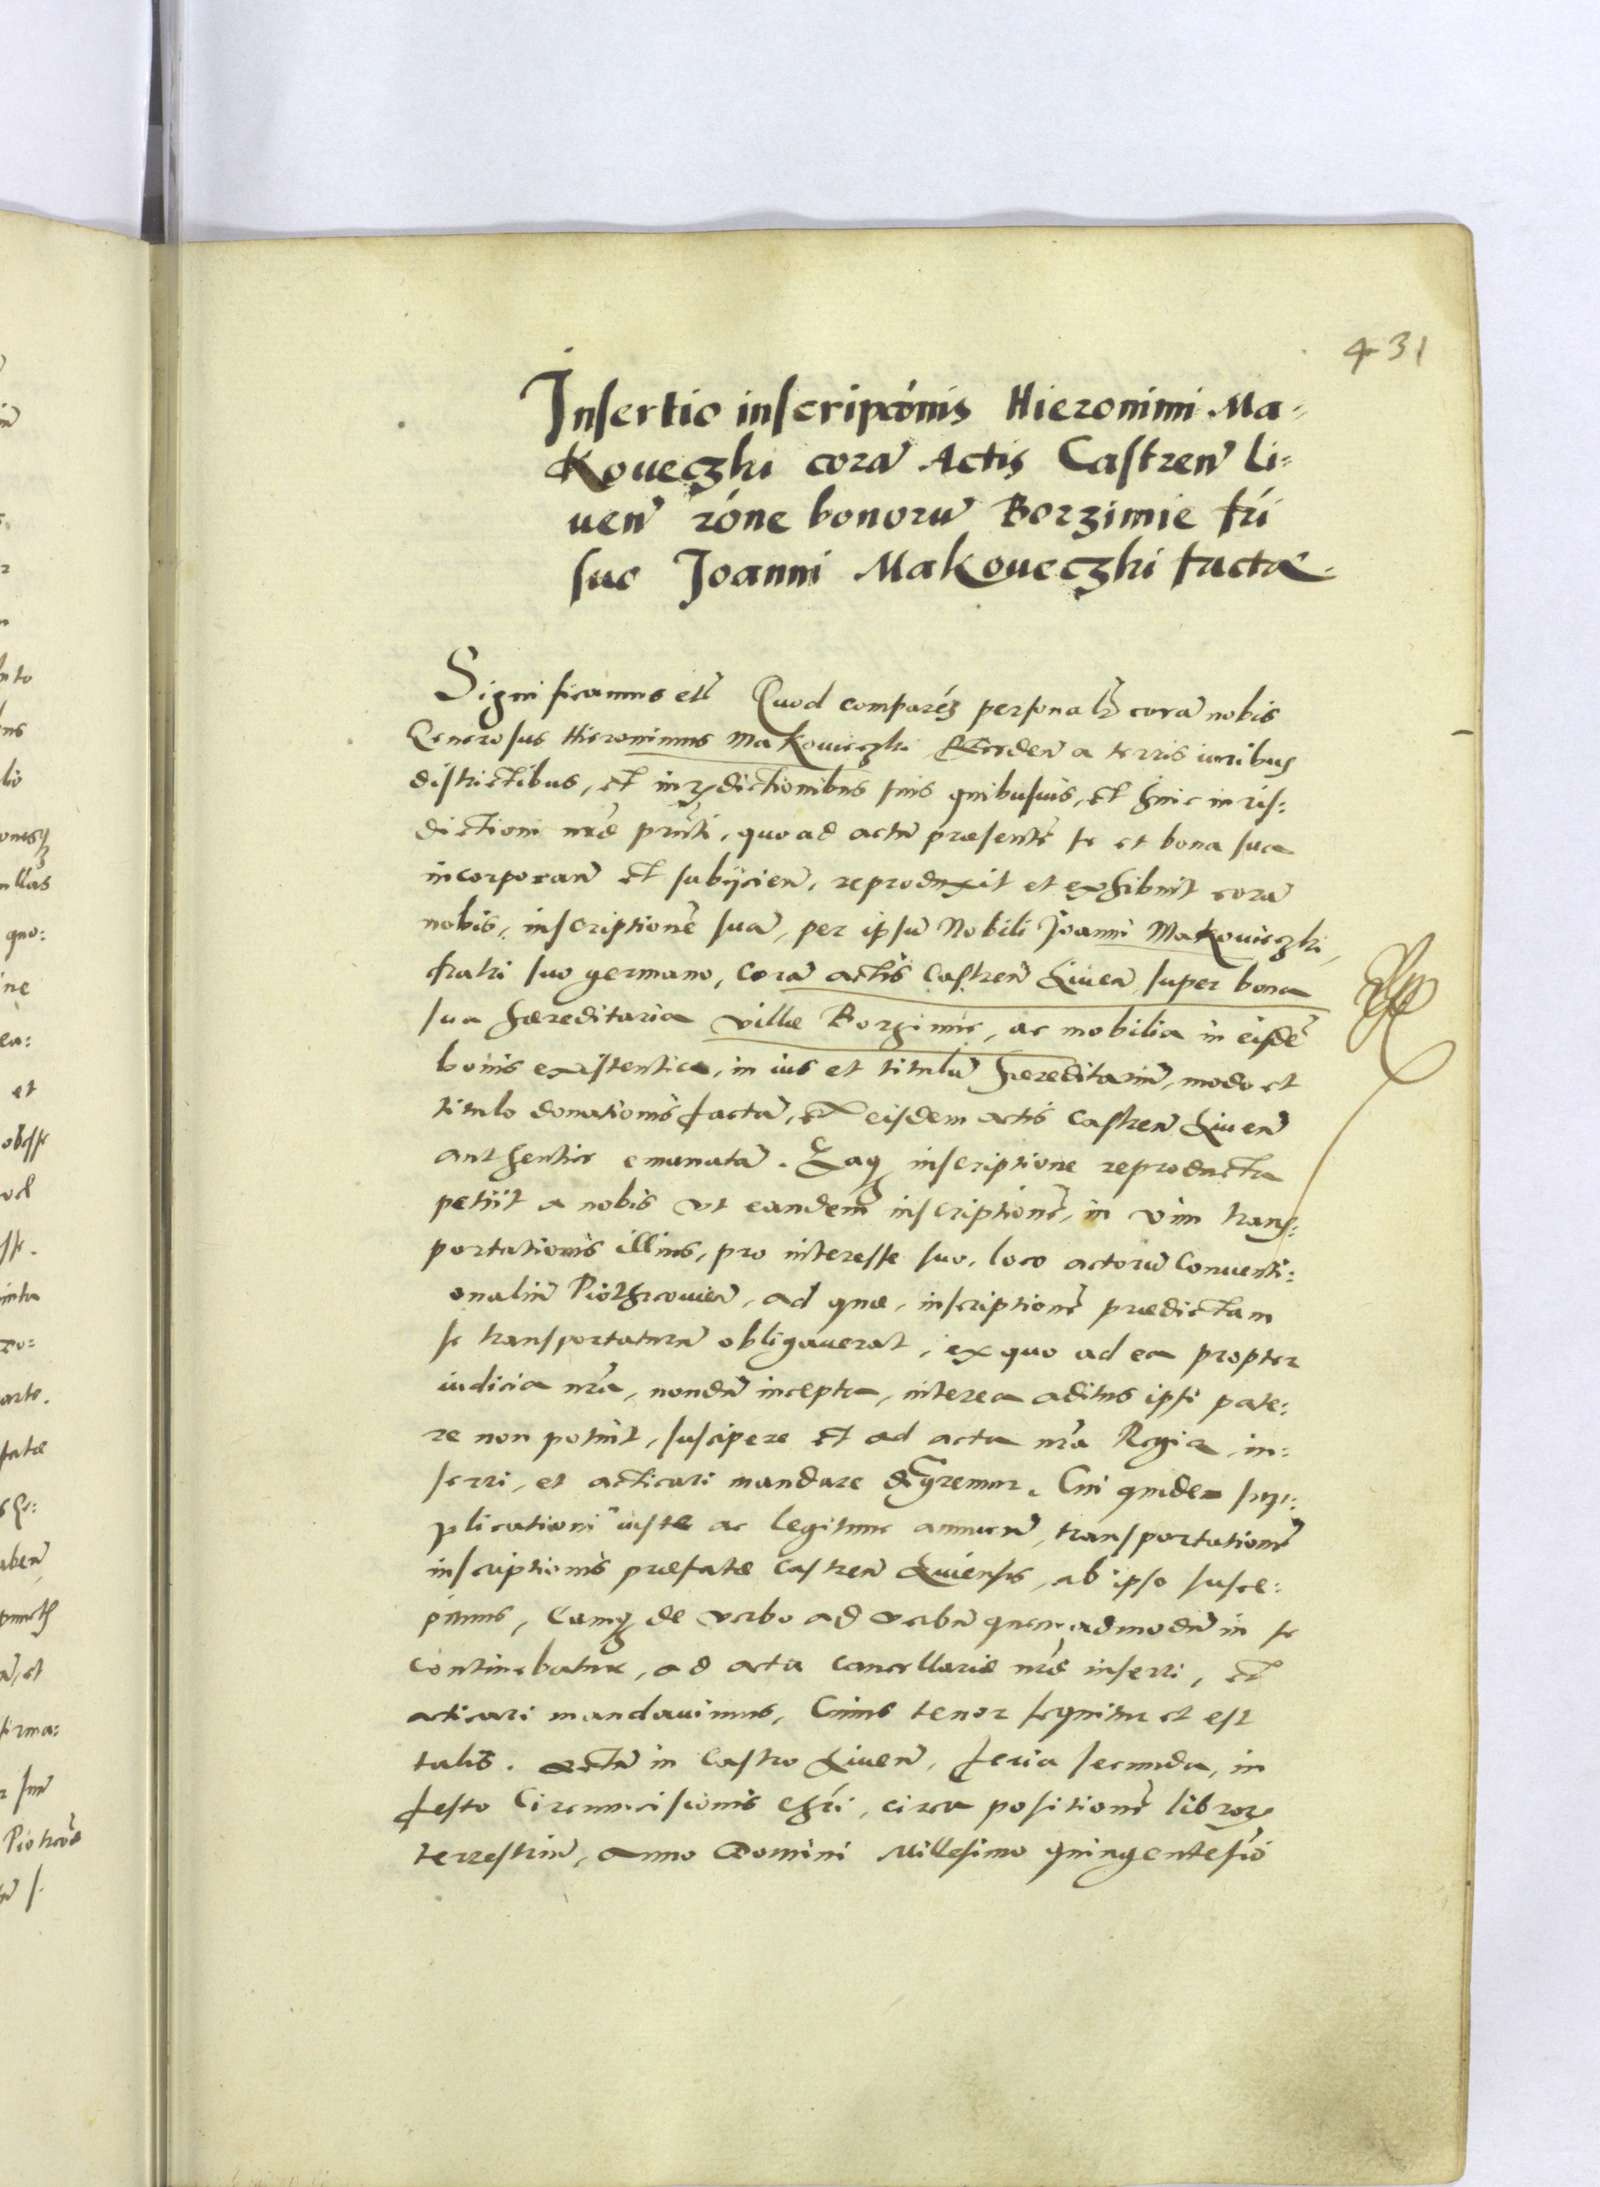 431
Insertio inscriptionis Hieronimi Ma-
koueczki corã Actis Castreñ li-
ueñ róne bonorũ Borzimie fri
suo Joanni Makoueczki factæ.
Significamus etc̃ Quod comparẽs personalr̃ corã nobis
Generosus Hieronimus Makowieczki recedeñ a terris iuribus
districtibus, et iurẓdictionibus suis quibusuis, et huic iuris-
dictioni nrẽ prñti, quo ad actũ præsentẽ se et bona sua
incorporañ et subijcieñ, reproduxit et exhibuit corã
nobis, inscriptionẽ suã, per ipsũ Nobili Joanni Makowieczki,
fratri suo germano, Corã actis Castreñ Liueñ super bona
sua hæreditaria villæ Borzimie, ac mobilia in eisdẽ
bonis existentia, in ius et titulũ hæreditariũ, modo et
titulo donationis factã, et eisdem actis Castreñ Liueñ
authentice emanatã. Eaq inscriptione reproducta
petiit a nobis vt eandem inscriptionẽ, in vim trans-
portationis illius, pro interesse suo, loco actorũ Conuenti-
onaliũ Piothrcouieñ, ad quæ, inscriptionẽ prædictam
se transportaturũ obligauerat, ex quo ad ea propter
iudicia nrã, nondũ incepta, interea aditus ipsi pate-
re non potuit, suscipere et ad acta nrã Regia, in-
serri, et acticari mandare dignaremur. Cui quidem sup-
plicationi iuste ac legitime annueñ, transportationẽ
inscriptionis præfatæ Castreñ Liuensis, ab ipso susce-
pimus, Eamq de verbo ad verbũ quemadmodũ in se
continebatur, ad acta cancellariæ nrẽ inserri, et
acticari mandauimus, Cuius tenor sequitur et est
talis. Actũ in Castro Liueñ, feria secunda, in
festo Circumcisionis Chri, circa positionẽ libroꝝ
terrestriũ, anno Domini Millesimo quingentesio